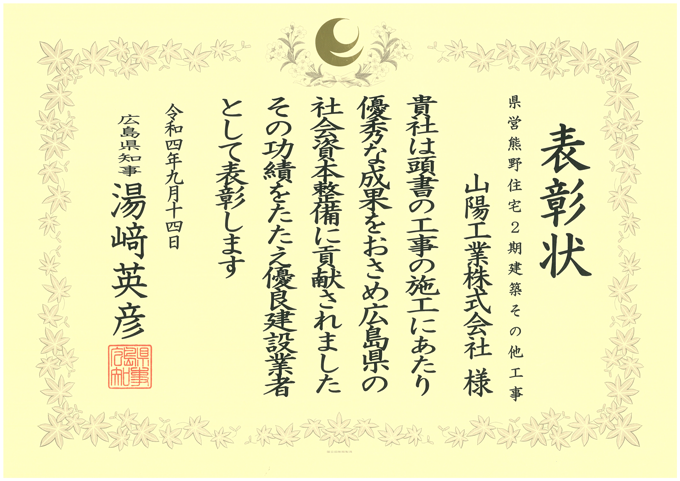 表彰状
県営熊野住宅２期建築その他工事
山陽工業株式会社 様
貴社は頭書の工事の施工にあたり
優秀な成果をおさめ広島県の
社会資本整備に貢献されました
その功績をたたえ優良建設業者
として表彰します
令和四年九月十四日
広島県知事 湯﨑英彦
県事
広島
知